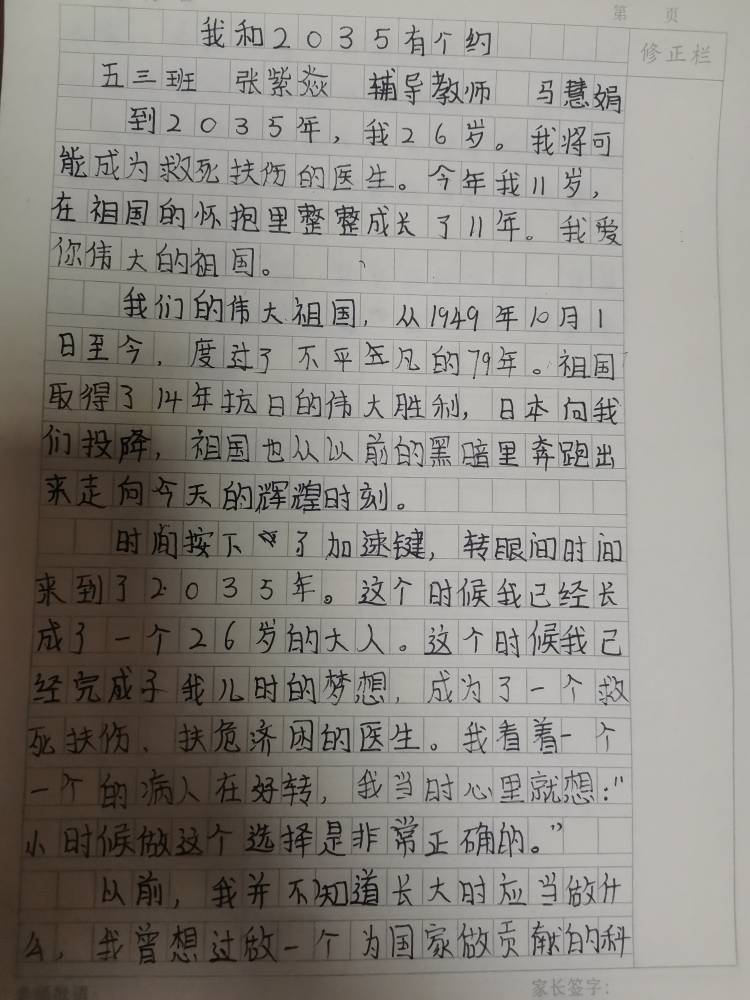 第 页
修正栏
我和2035有个约
五三班 张紫焱 辅导教师 马慧娟
到2035年，我26岁。我将可
能成为救死扶伤的医生。今年我11岁，
在祖国的怀抱里整整成长了11年。我爱
你伟大的祖国。
我们的伟大祖国，从1949年10月1
日至今，度过了不平凡的79年。祖国
取得了14年抗日的伟大胜利，日本向我
们投降，祖国也从以前的黑暗里奔跑出
来走向今天的辉煌时刻。
时间按下了加速键，转眼间时间
来到了2035年。这个时候我已经长
成了一个26岁的大人。这个时候我已
经完成了我儿时的梦想，成为了一个救
死扶伤、扶危济困的医生。我看着一个
一个的病人在好转，我当时心里就想：“
小时候做这个选择是非常正确的。”
以前，我并不知道长大时应当做什
么，我曾想过做一个为国家做贡献的科
家长签字：